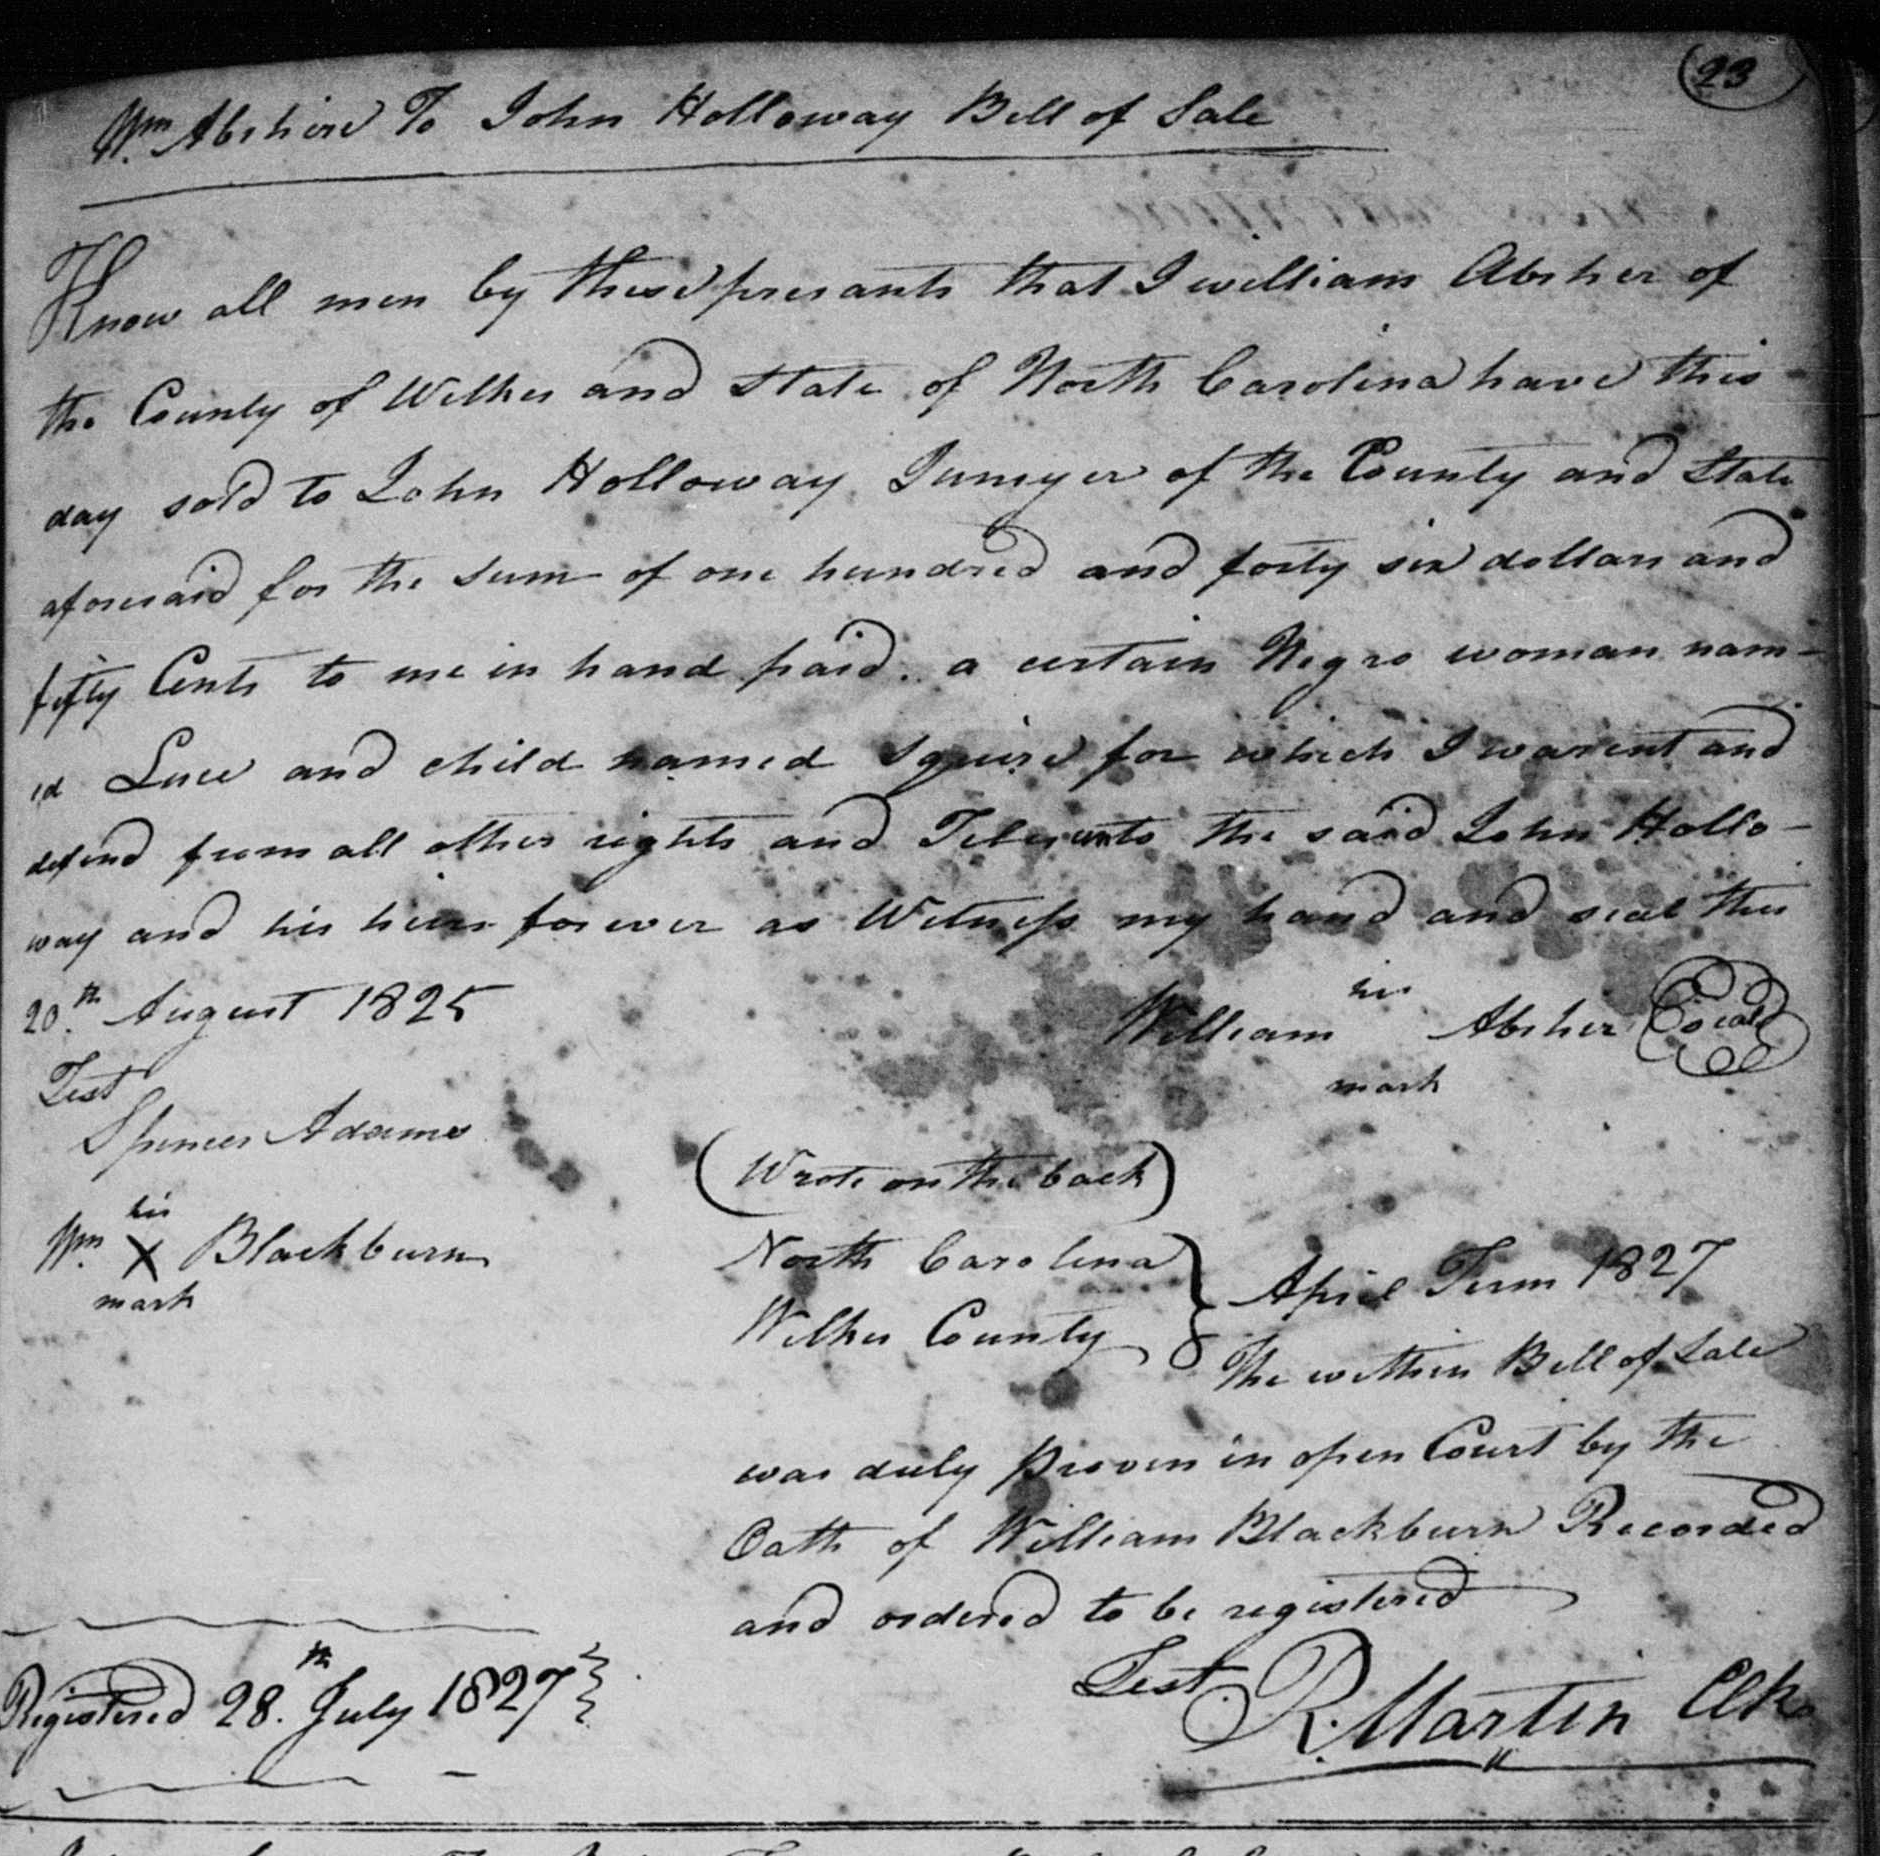 23
Wm. Abshire To John Holloway Bill of Sale
Know all men by these presants that I william Absher of
the County of Wilkes and State of North Carolina have this
day sold to John Holloway Junyer of the County and State
aforesaid for the sum of one hundred and forty six dollars and
fifty Cents to me in hand paid. a certain Negro woman nam-
ed Luce and child named Squire for which I warent and
defend from all other rights and the said John Hollo-
way and his heirs forever as Witness my hand and seal this
20.th August 1825
his
William Absher (seal)
mark
Test
Spencer Adams
his
Wm. X Blackburn
mark
(Wrote on the back)
North Carolina } April Term 1827
Wilkes County } The within Bill of Sale
was duly proven in open Court by the
Oath of William Blackburn Recorded
and ordered to be registered
Test. R. Martin Clk
Registered 28.th July 1827